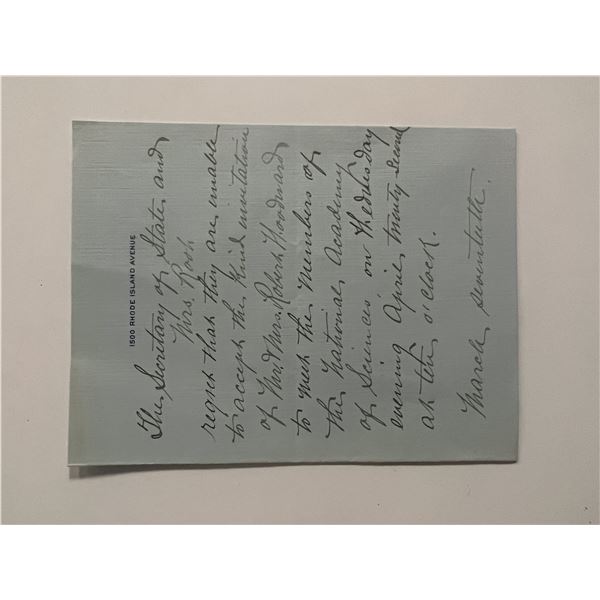 1500 RHODE ISLAND AVENUE
The Secretary of State and
Mrs. Root
regret that they are unable
to accept the kind invitation
of Mr. & Mrs. Robert Woodward
to meet the members of
the National Academy
of Sciences on Wednesday
evening April twenty second
at ten o'clock.
March seventeenth.